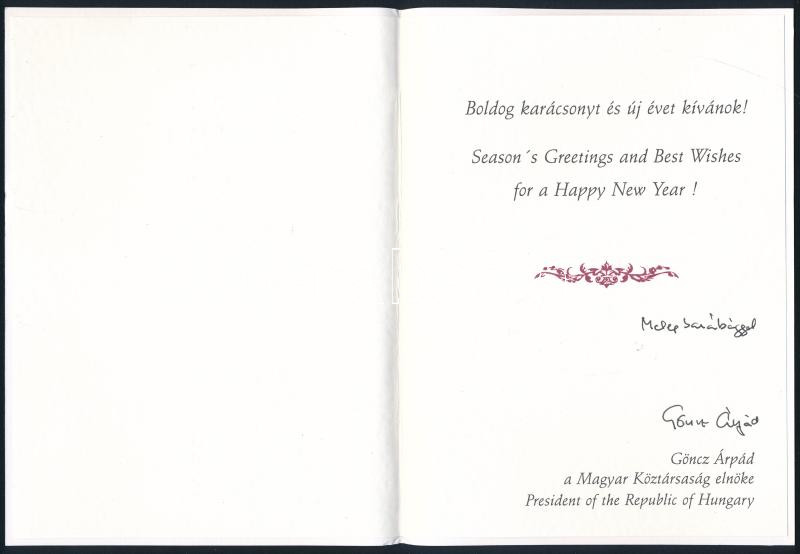 Boldog karácsonyt és új évet kívánok!
Season´s Greetings and Best Wishes
for a Happy New Year !
Meleg barátsággal
Göncz Árpád
Göncz Árpád
a Magyar Köztársaság elnöke
President of the Republic of Hungary